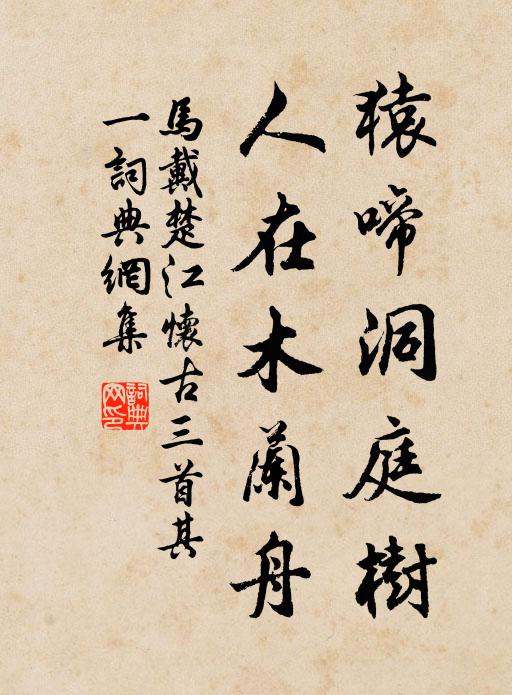 猿啼洞庭樹
人在木蘭舟
馬戴楚江懷古三首其
一詞典網集
詞典
网印